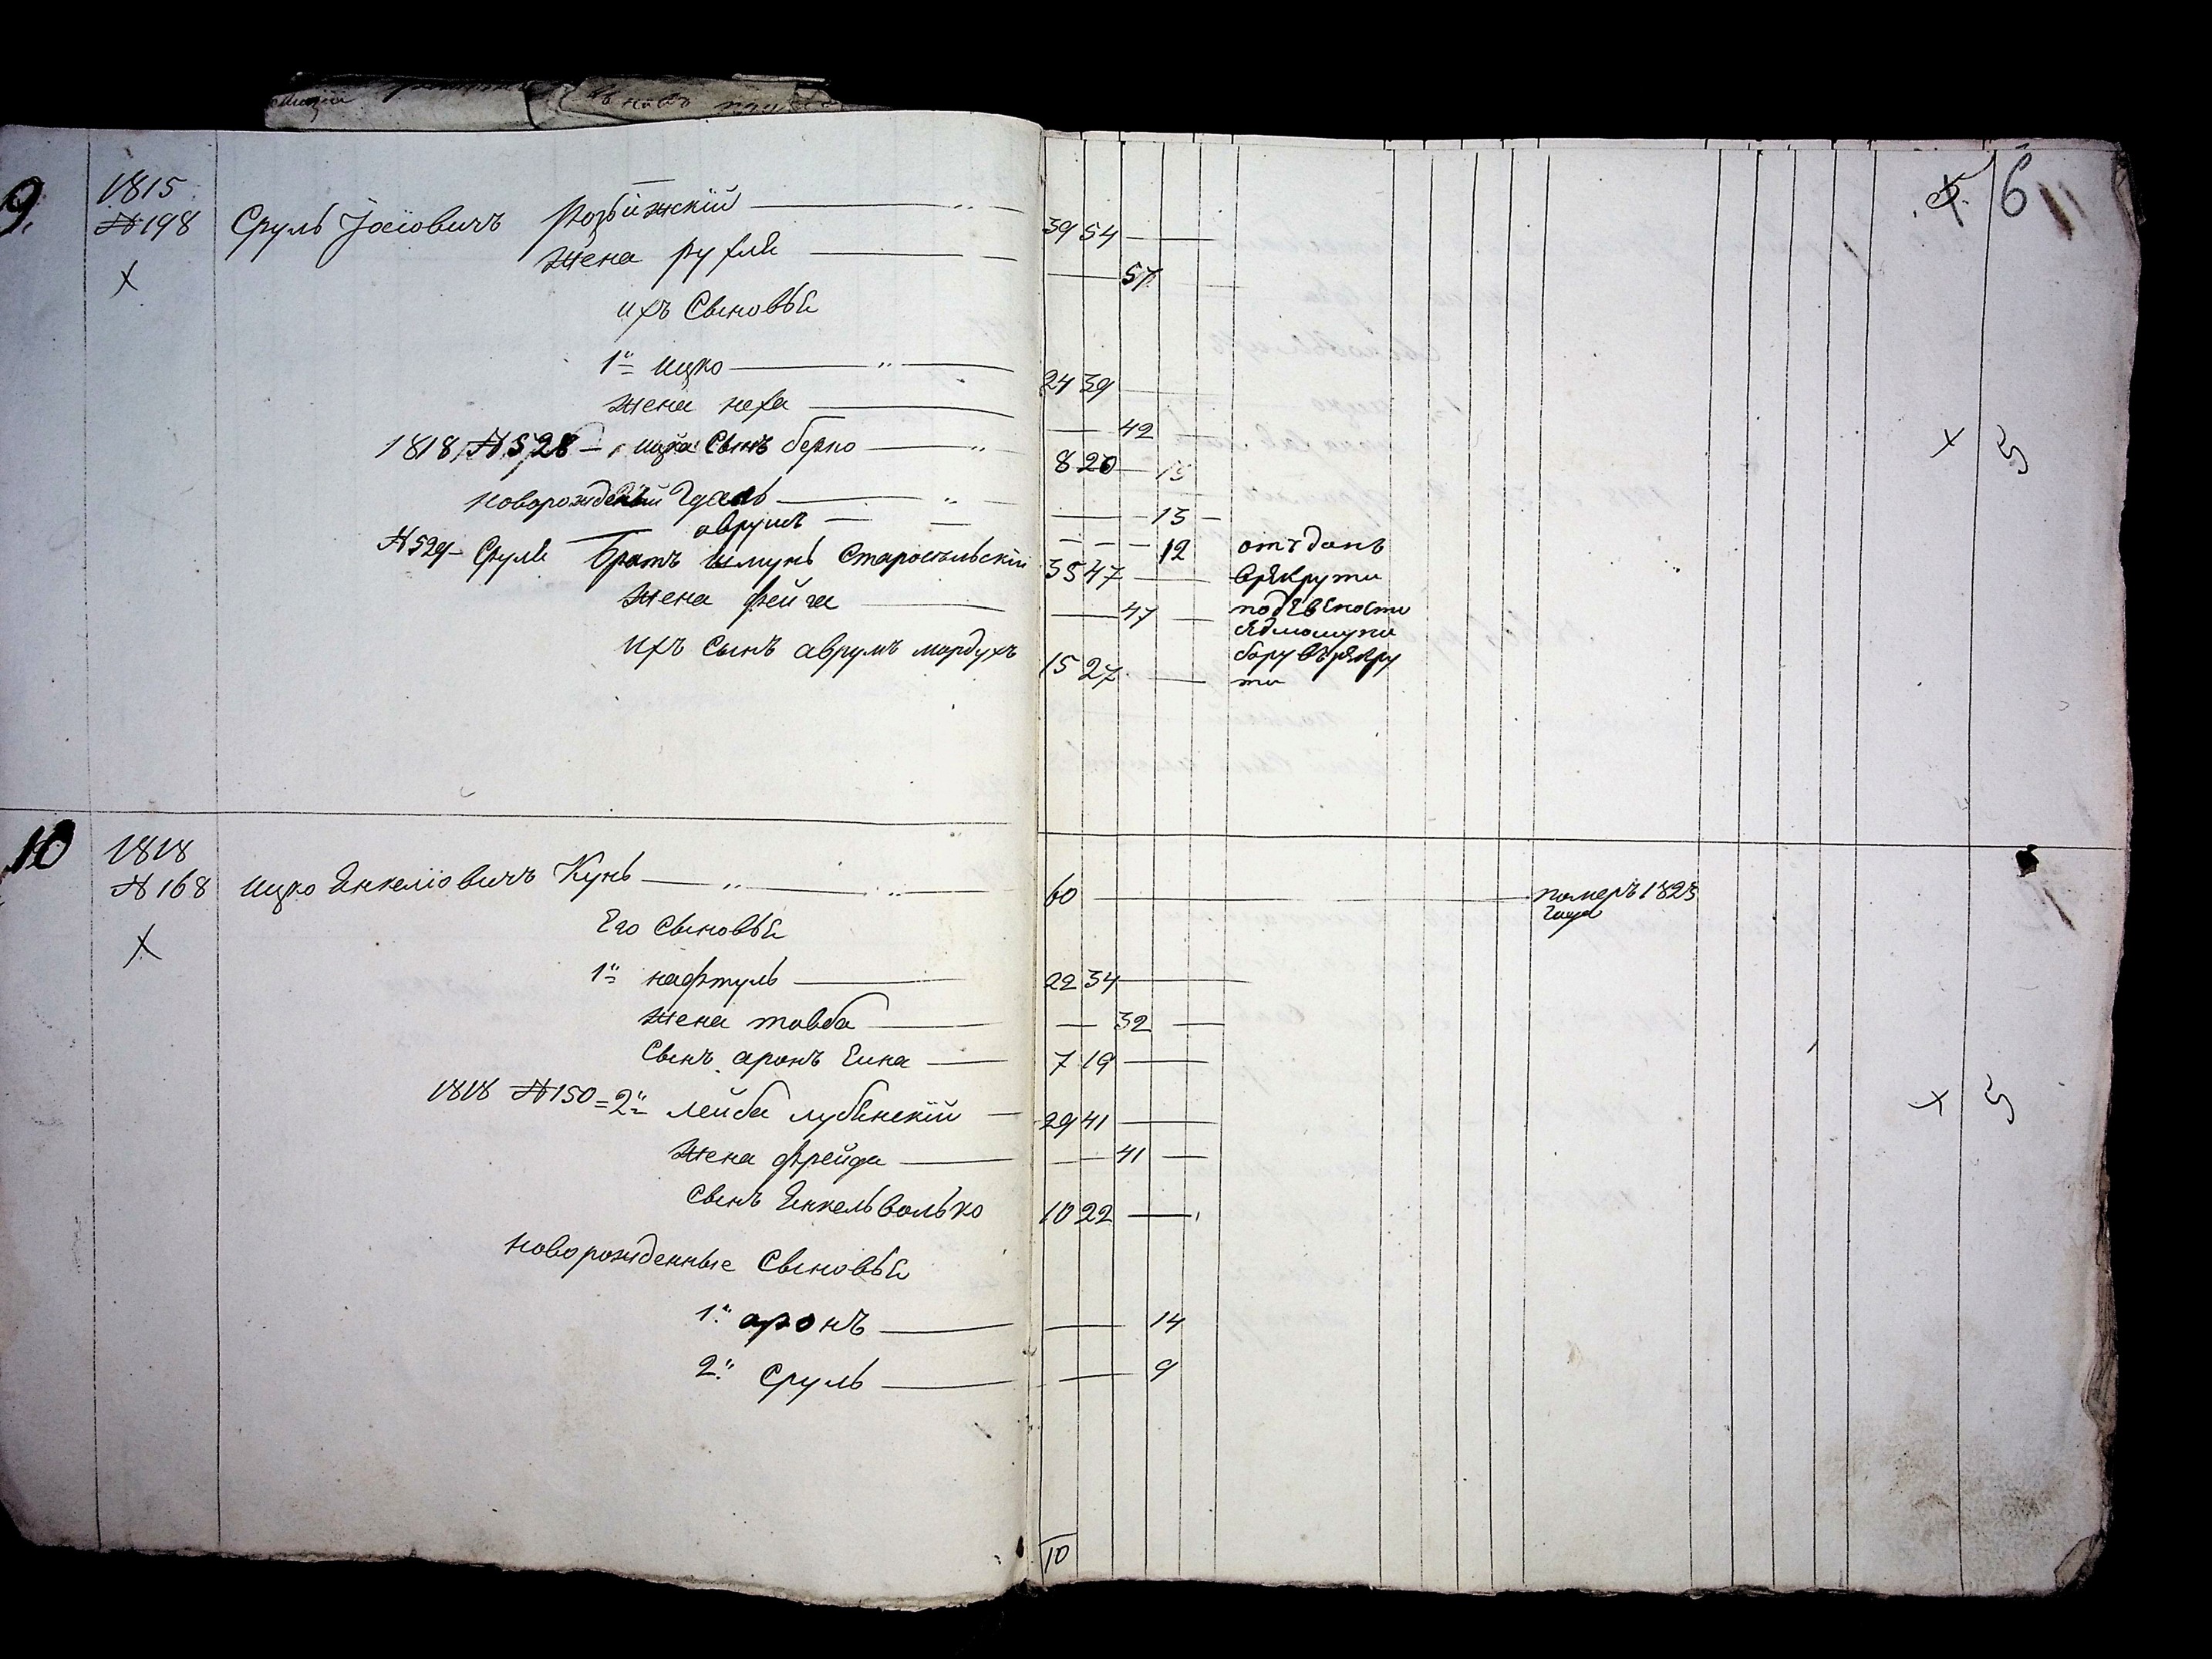 5. 6
9. 1815
№198 Сруль Іосіовичъ Розъижскій — „ — 39 54
Жена рухля — 57
ихъ Сыновья
1й ицко — „ — 24 39
Жена неха — 42
1818 №528 — ицка Сынъ берко — „ — 8 20 — 13
Новорожденый — „ — 13
аврумъ — 12 отъданъ
№529 — Сруля братъ шмунь Старосѣльскій 35 47 —
Жена фейга — 47
ихъ Сынъ аврумъ мордухъ 15 27 —
10 1818
№168 ицко Енкеліовичъ Кунъ — „ — „ — 60 — померъ 1823
года
Его Сыновья
1й нафтуль — 22 34 —
Жена товба — 32 —
Сынъ аронъ — 7 19 —
1818 №150 = 2й лейба лубенскій — 29 41 —
Жена фрейда — 41 —
Сынъ Енкель волько 10 22 —
новорожденные Сыновья
1й аронъ — 14
2й Сруль — 9
10